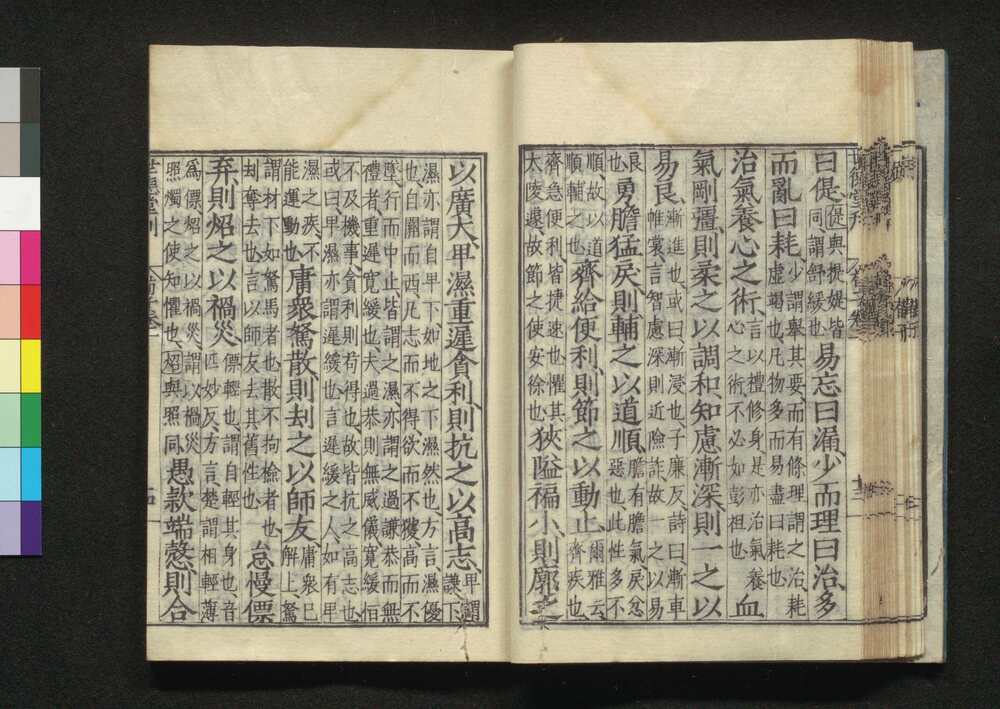 曰偍、偍與提媞皆同、謂舒緩也、易忘曰漏、少而理曰治、多
而亂曰耗、少謂舉其要、而有條理謂之治、耗虛竭也、凡物多而易盡曰耗也
治氣養心之術、言以禮修身、是亦治氣養心之術、不必如彭祖也 血
氣剛彊、則柔之以調和、知慮漸深、則一之以
易良、漸進也、或曰漸浸也、子廉反、詩曰漸車帷裳、言智慮深則近險詐、故一之以易
良也、勇膽猛戾則輔之以道順、膽有膽氣、戾忿惡也、此性多不
順、故以道順輔之也、齊給便利、則節之以動止、爾雅云、齊疾也
齊急便利、皆捷速也、懼其太陵遽、故節之使安徐也、狹隘褊小、則廓之
以廣大、卑濕重遲貪利、則抗之以高志、卑謂謙下
濕亦謂自卑下、如地之下濕然也、方言、濕優
也、自關而西、凡志而不得、欲而不獲、高而不
墜、行而中止、皆謂之濕、亦謂之過謙恭而無
禮者、重遲寬緩也、夫過恭則無威儀、寬緩恒
不及機事、貪利則苟得也、故皆抗之高志也、
或曰、卑濕亦謂遲緩也、言遲緩之人、如有卑
濕之疾、不能運動也、庸衆駑散則刦之以師友、庸衆已解上、駑
謂材下如駑馬者也、散不拘檢者也、刦奪去也、言以師友去其舊性也、怠慢僄
弃則炤之以禍災、僄輕也、謂自輕其身也、音匹妙反、方言、楚謂相輕薄
爲僄、炤之以禍災、謂以禍災照燭之使知懼也、炤與照同、愚款端愨、則合
世德堂刊